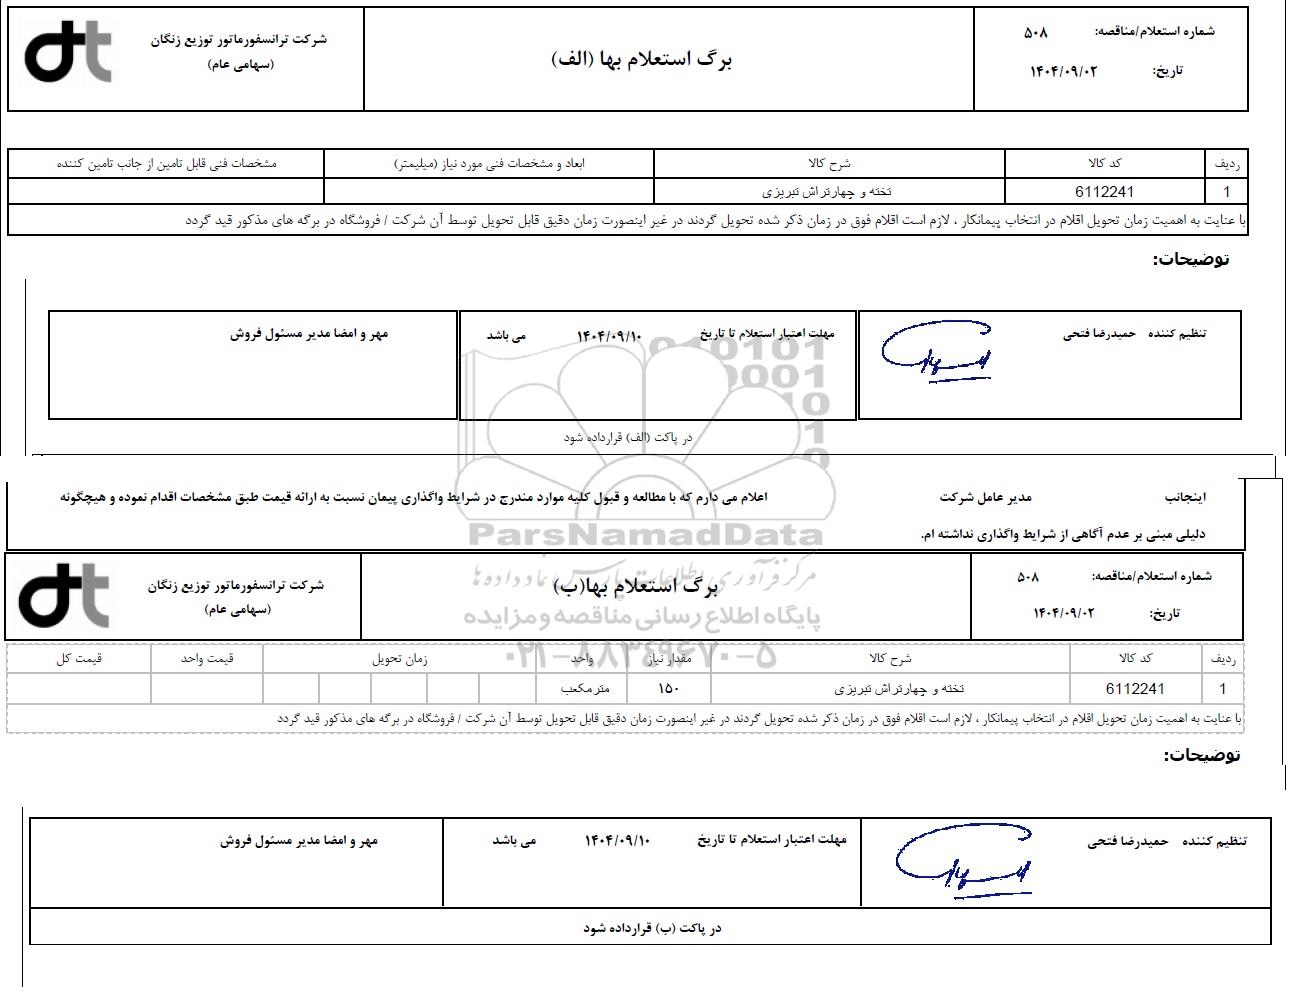 شماره استعلام/مناقصه: ۵۰۸
تاریخ: ۱۴۰۴/۰۹/۰۲
برگ استعلام بها (الف)
شرکت ترانسفورماتور توزیع زنگان
(سهامی عام)
ردیف کد کالا شرح کالا ابعاد و مشخصات فنی مورد نیاز (میلیمتر) مشخصات فنی قابل تامین از جانب تامین کننده
1 6112241 تخته و چهارتراش تبریزی
با عنایت به اهمیت زمان تحویل اقلام در انتخاب پیمانکار ، لازم است اقلام فوق در زمان ذکر شده تحویل گردند در غیر اینصورت زمان دقیق قابل تحویل توسط آن شرکت / فروشگاه در برگه های مذکور قید گردد
توضیحات:
تنظیم کننده حمیدرضا فتحی
مهلت اعتبار استعلام تا تاریخ ۱۴۰۴/۰۹/۱۰ می باشد
مهر و امضا مدیر مسئول فروش
در پاکت (الف) قرارداده شود
اینجانب مدیر عامل شرکت اعلام می دارم که با مطالعه و قبول کلیه موارد مندرج در شرایط واگذاری پیمان نسبت به ارائه قیمت طبق مشخصات اقدام نموده و هیچگونه
دلیلی مبنی بر عدم آگاهی از شرایط واگذاری نداشته ام.
ParsNamadData
مرکز فرآوری اطلاعات پارس نماد داده ها
پایگاه اطلاع رسانی مناقصه و مزایده
۰۲۱-۸۸۳۴۹۶۷۰-۵
شماره استعلام/مناقصه: ۵۰۸
تاریخ: ۱۴۰۴/۰۹/۰۲
برگ استعلام بها(ب)
شرکت ترانسفورماتور توزیع زنگان
(سهامی عام)
ردیف کد کالا شرح کالا مقدار نیاز واحد زمان تحویل قیمت واحد قیمت کل
1 6112241 تخته و چهارتراش تبریزی ۱۵۰ مترمکعب
با عنایت به اهمیت زمان تحویل اقلام در انتخاب پیمانکار ، لازم است اقلام فوق در زمان ذکر شده تحویل گردند در غیر اینصورت زمان دقیق قابل تحویل توسط آن شرکت / فروشگاه در برگه های مذکور قید گردد
توضیحات:
تنظیم کننده حمیدرضا فتحی
مهلت اعتبار استعلام تا تاریخ ۱۴۰۴/۰۹/۱۰ می باشد
مهر و امضا مدیر مسئول فروش
در پاکت (ب) قرارداده شود